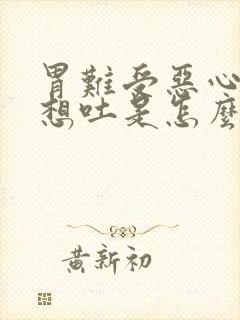 胃難受惡心
想吐是怎麼
黃新初